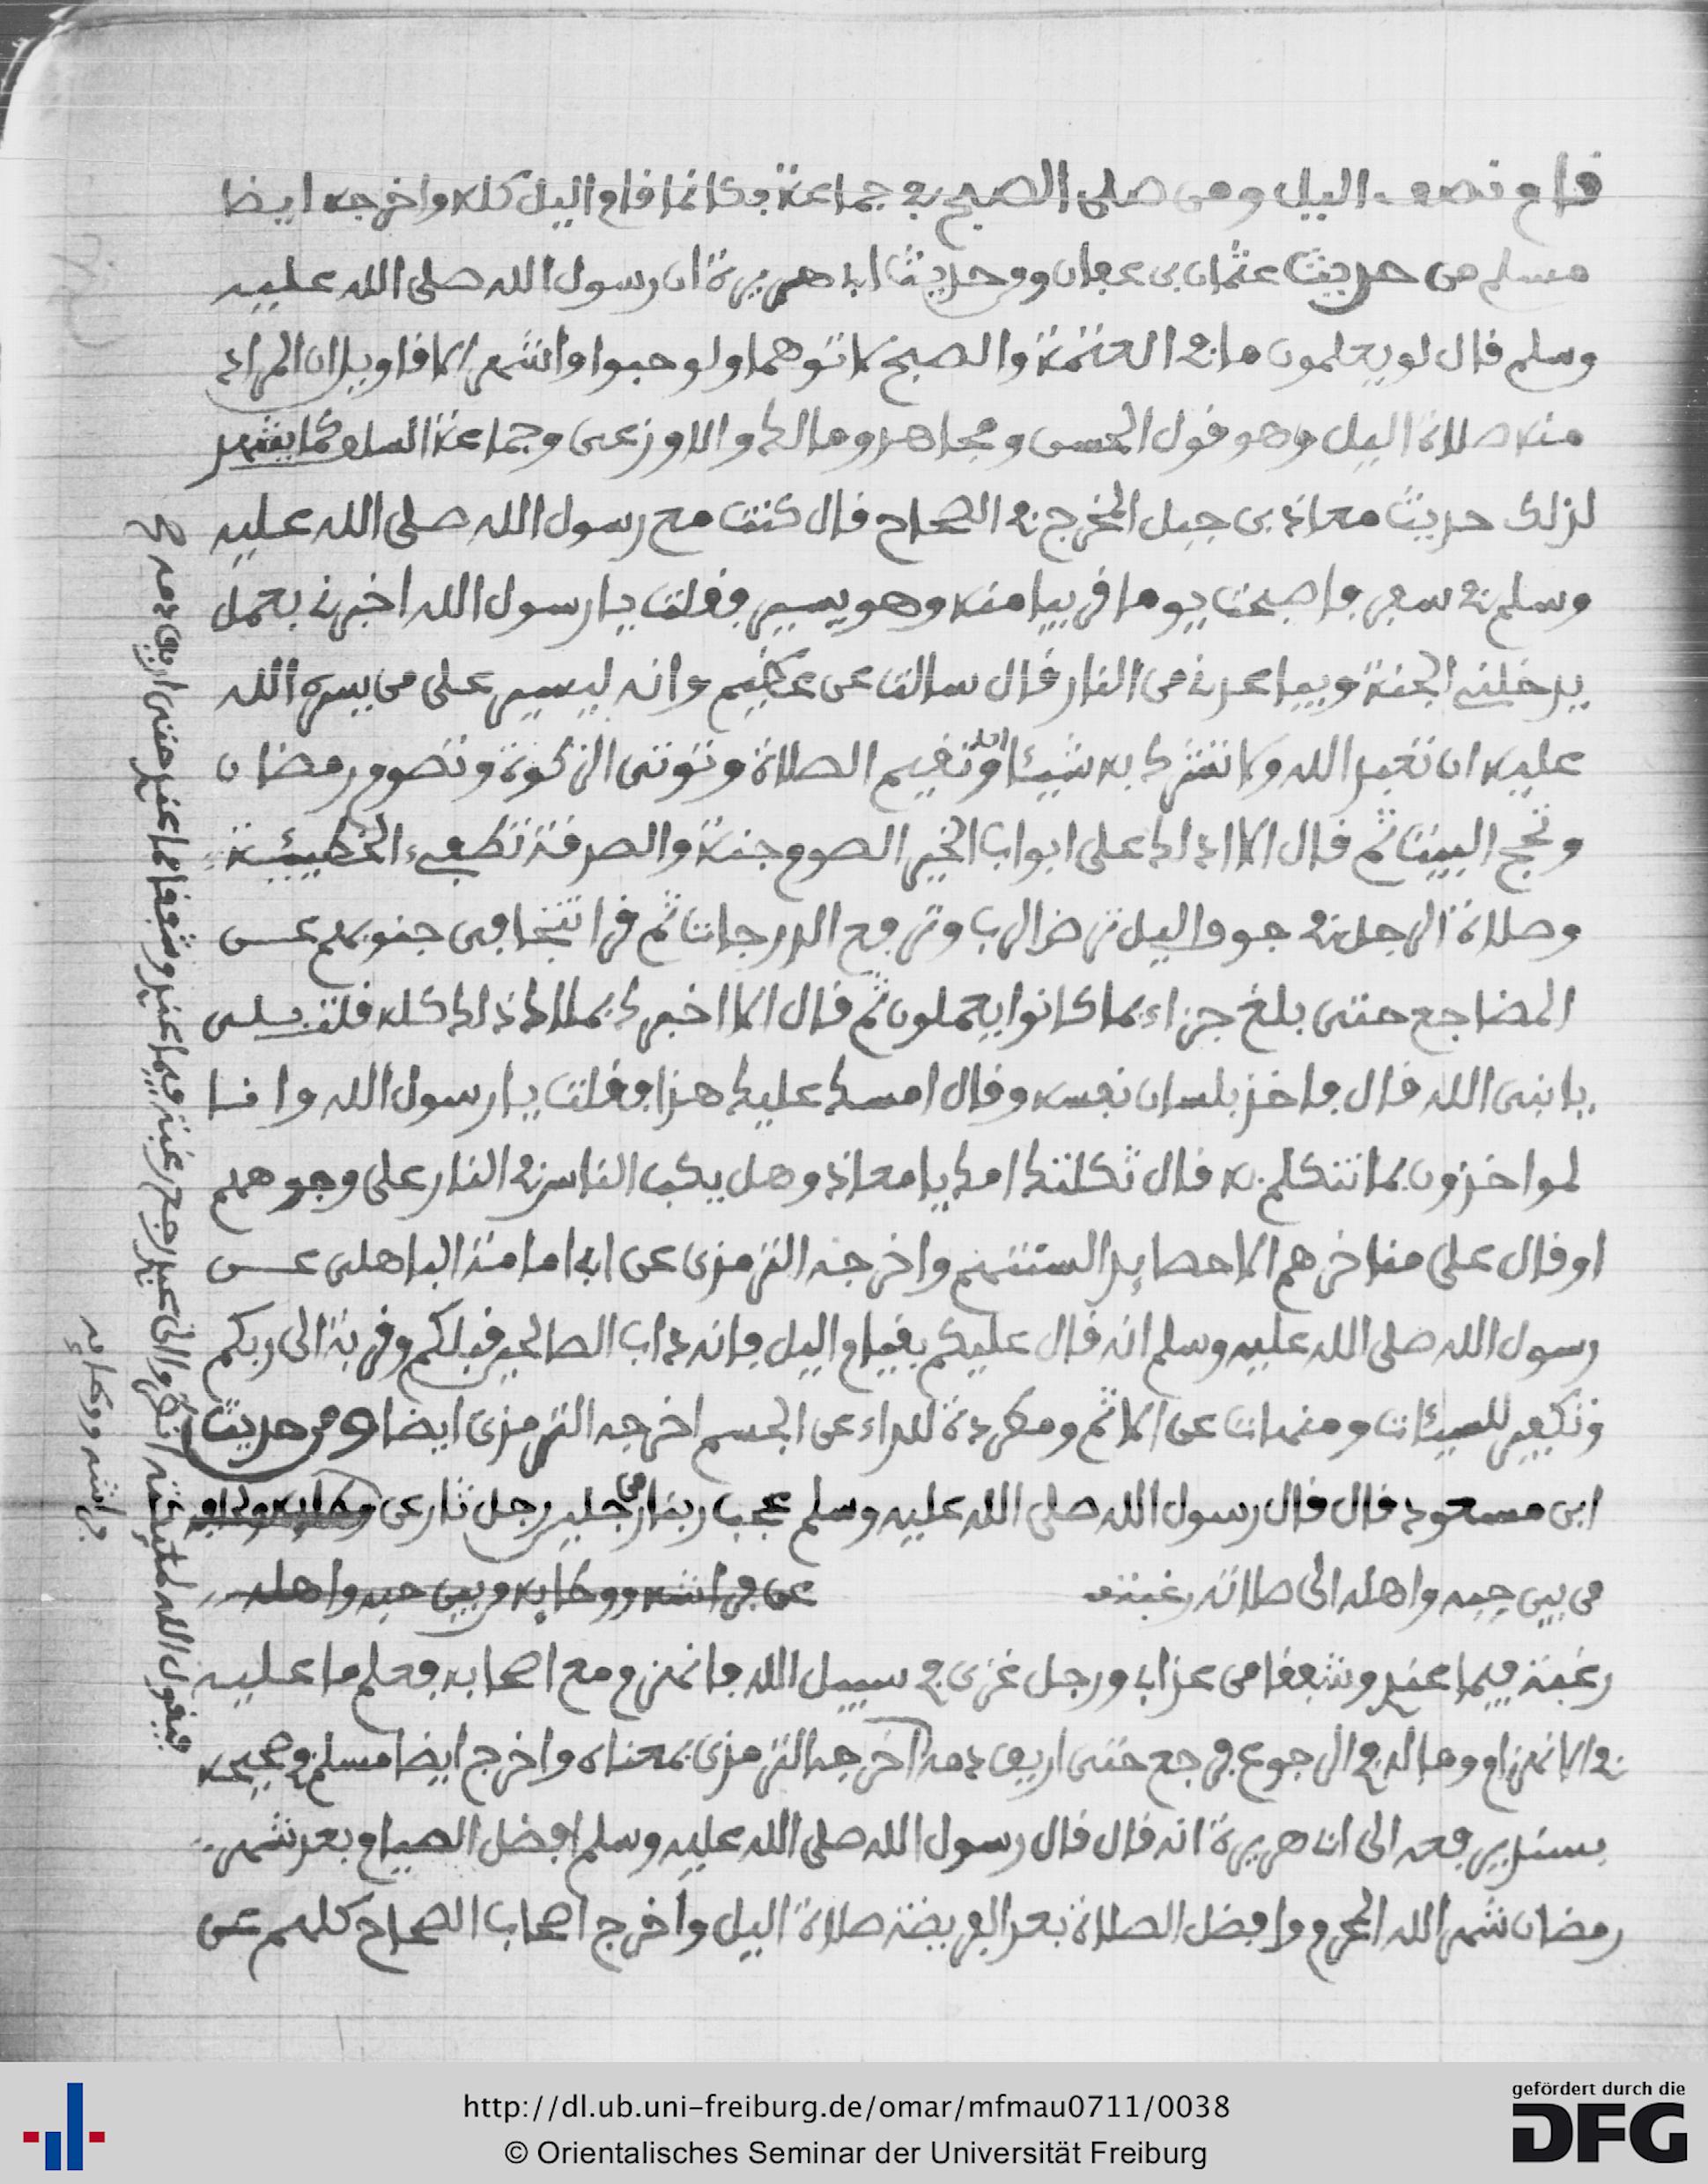 قام نصف اليل ومن صلى الصبح في جماعة فكانما قام اليل كله واخرجه ايضا
مسلم من حديث عثمان بن عفان وفي حديث ابي هريرة ان رسول الله صلى الله عليه
وسلم قال لو يعلمون ما في العتمة والصبح لاتوهما ولو حبوا واشهر الاقاويل ان المراد
منه صلاة اليل وهو قول الحسن ومجاهد ومالك والاوزعى وجماعة السلف كما يشهد
لذلك حديث معاذ بن جبل المخرج في الصحاح قال كنت مع رسول الله صلى الله عليه
وسلم في سفر فاصبحت يوما قريبا منه وهو يسير فقلت يا رسول الله اخبرني بعمل
يدخلني الجنة ويباعدني من النار قال سالت عن عظيم وانه ليسير على من يسره الله
عليه ان تعبد الله ولا تشرك به شيئا وتقيم الصلاة وتوتى الزكوة وتصوم رمضان
وتحج البيت ثم قال الا ادلك على ابواب الخير الصوم جنة والصدقة تطفىء الخطيئة
وصلاة الرجل في جوف اليل ترضي الرب وترفع الدرجات ثم قرا تتجافى جنوبهم عن
المضاجع حتى بلغ جزاء بما كانوا يعملون ثم قال الا اخبرك بملاك ذلك كله قلت بلى
يا نبى الله قال فاخذ بلسان نفسه وقال امسك عليك هذا فقلت يا رسول الله وانا
لمواخذون بما نتكلم به قال ثكلتك امك يا معاذ وهل يكب الناس في النار على وجوههم
او قال على مناخرهم الا حصايد السنتهم واخرجه الترمذى عن ابي امامة الباهلى عن
رسول الله صلى الله عليه وسلم انه قال عليكم بقيام اليل فانه داب الصالحين قبلكم وقربة الى ربكم
وتكفير للسيئات ومنهات عن الاثم ومطردة للداء عن الجسم اخرجه الترمذى ايضا ومن حديث
ابن مسعود قال قال رسول الله صلى الله عليه وسلم عجب ربنا من رجلين رجل ثار عن وطايه ولحافه
من بين حبه واهله الى صلاته رغبة عن فراشه ووطايه وبين حبه واهله
رغبة فيما عندي وشفقا من عذابي ورجل غزى في سبيل الله فانهزم مع اصحابه فعلم ما عليه
في الانهزام وما له في الرجوع فرجع حتى اريق دمه اخرجه الترمذى بمعناه واخرج ايضا مسلم في صحيحه
بسند يرفعه الى ابي هريرة انه قال قال رسول الله صلى الله عليه وسلم افضل الصيام بعد شهر
رمضان شهر الله المحرم وافضل الصلاة بعد الفريضة صلاة اليل واخرج اصحاب الصحاح كلهم عن
فيقول الله لمليكته انظروا الى عبدي رجع رغبة فيما عندي وشفقا مما عندي حتى اريق دمه صح
فراشه ووطايه
http://dl.ub.uni-freiburg.de/omar/mfmau0711/0038
© Orientalisches Seminar der Universität Freiburg
gefördert durch die
DFG